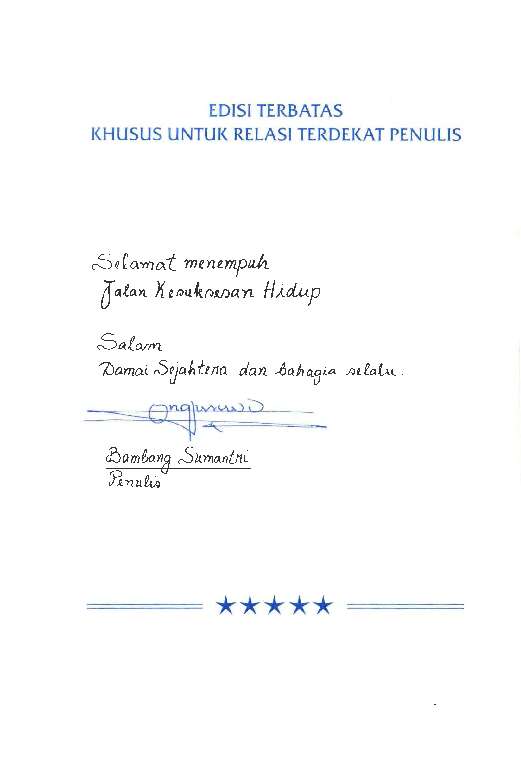 EDISI TERBATAS
KHUSUS UNTUK RELASI TERDEKAT PENULIS
Selamat menempuh
Jalan Kesuksesan Hidup
Salam
Damai Sejahtera dan bahagia selalu.
Bambang Sumantri
Penulis